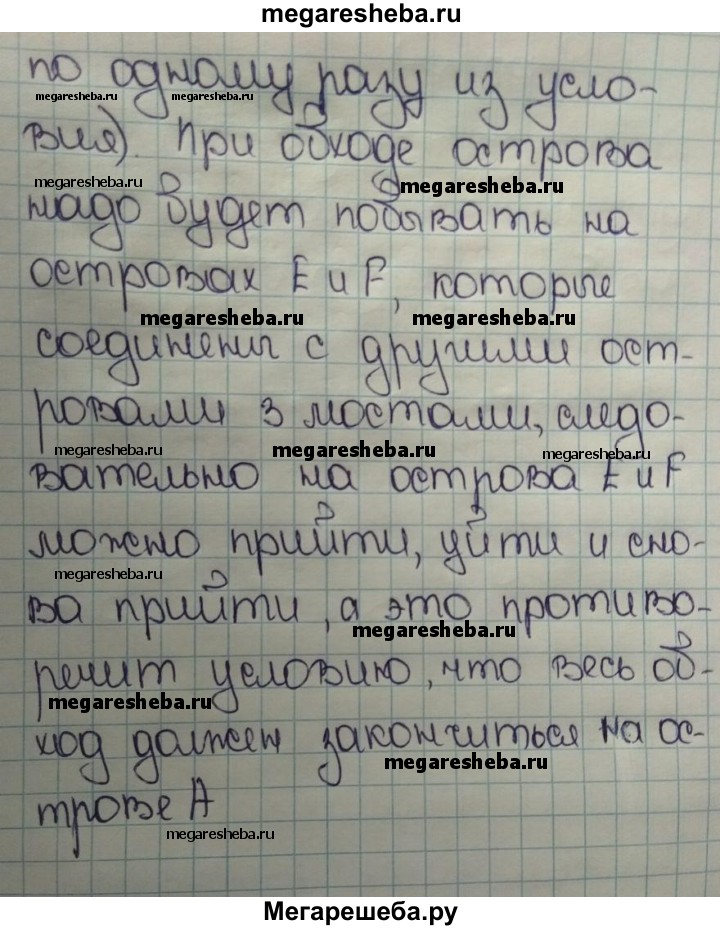 megaresheba.ru
по одному разу из усло-
megaresheba.ru megaresheba.ru
вия). При обходе острова
megaresheba.ru megaresheba.ru
надо будет побывать на
островах E и F, которые
megaresheba.ru megaresheba.ru
соединены с другими ост-
ровами 3 мостами, следо-
megaresheba.ru megaresheba.ru megaresheba.ru
вательно на острова E и F
можно прийти, уйти и сно-
megaresheba.ru
ва прийти, а это противо-
megaresheba.ru
речит условию, что весь об-
megaresheba.ru
ход должен закончиться на ос-
megaresheba.ru
трове A
megaresheba.ru
Мегарешеба.ру